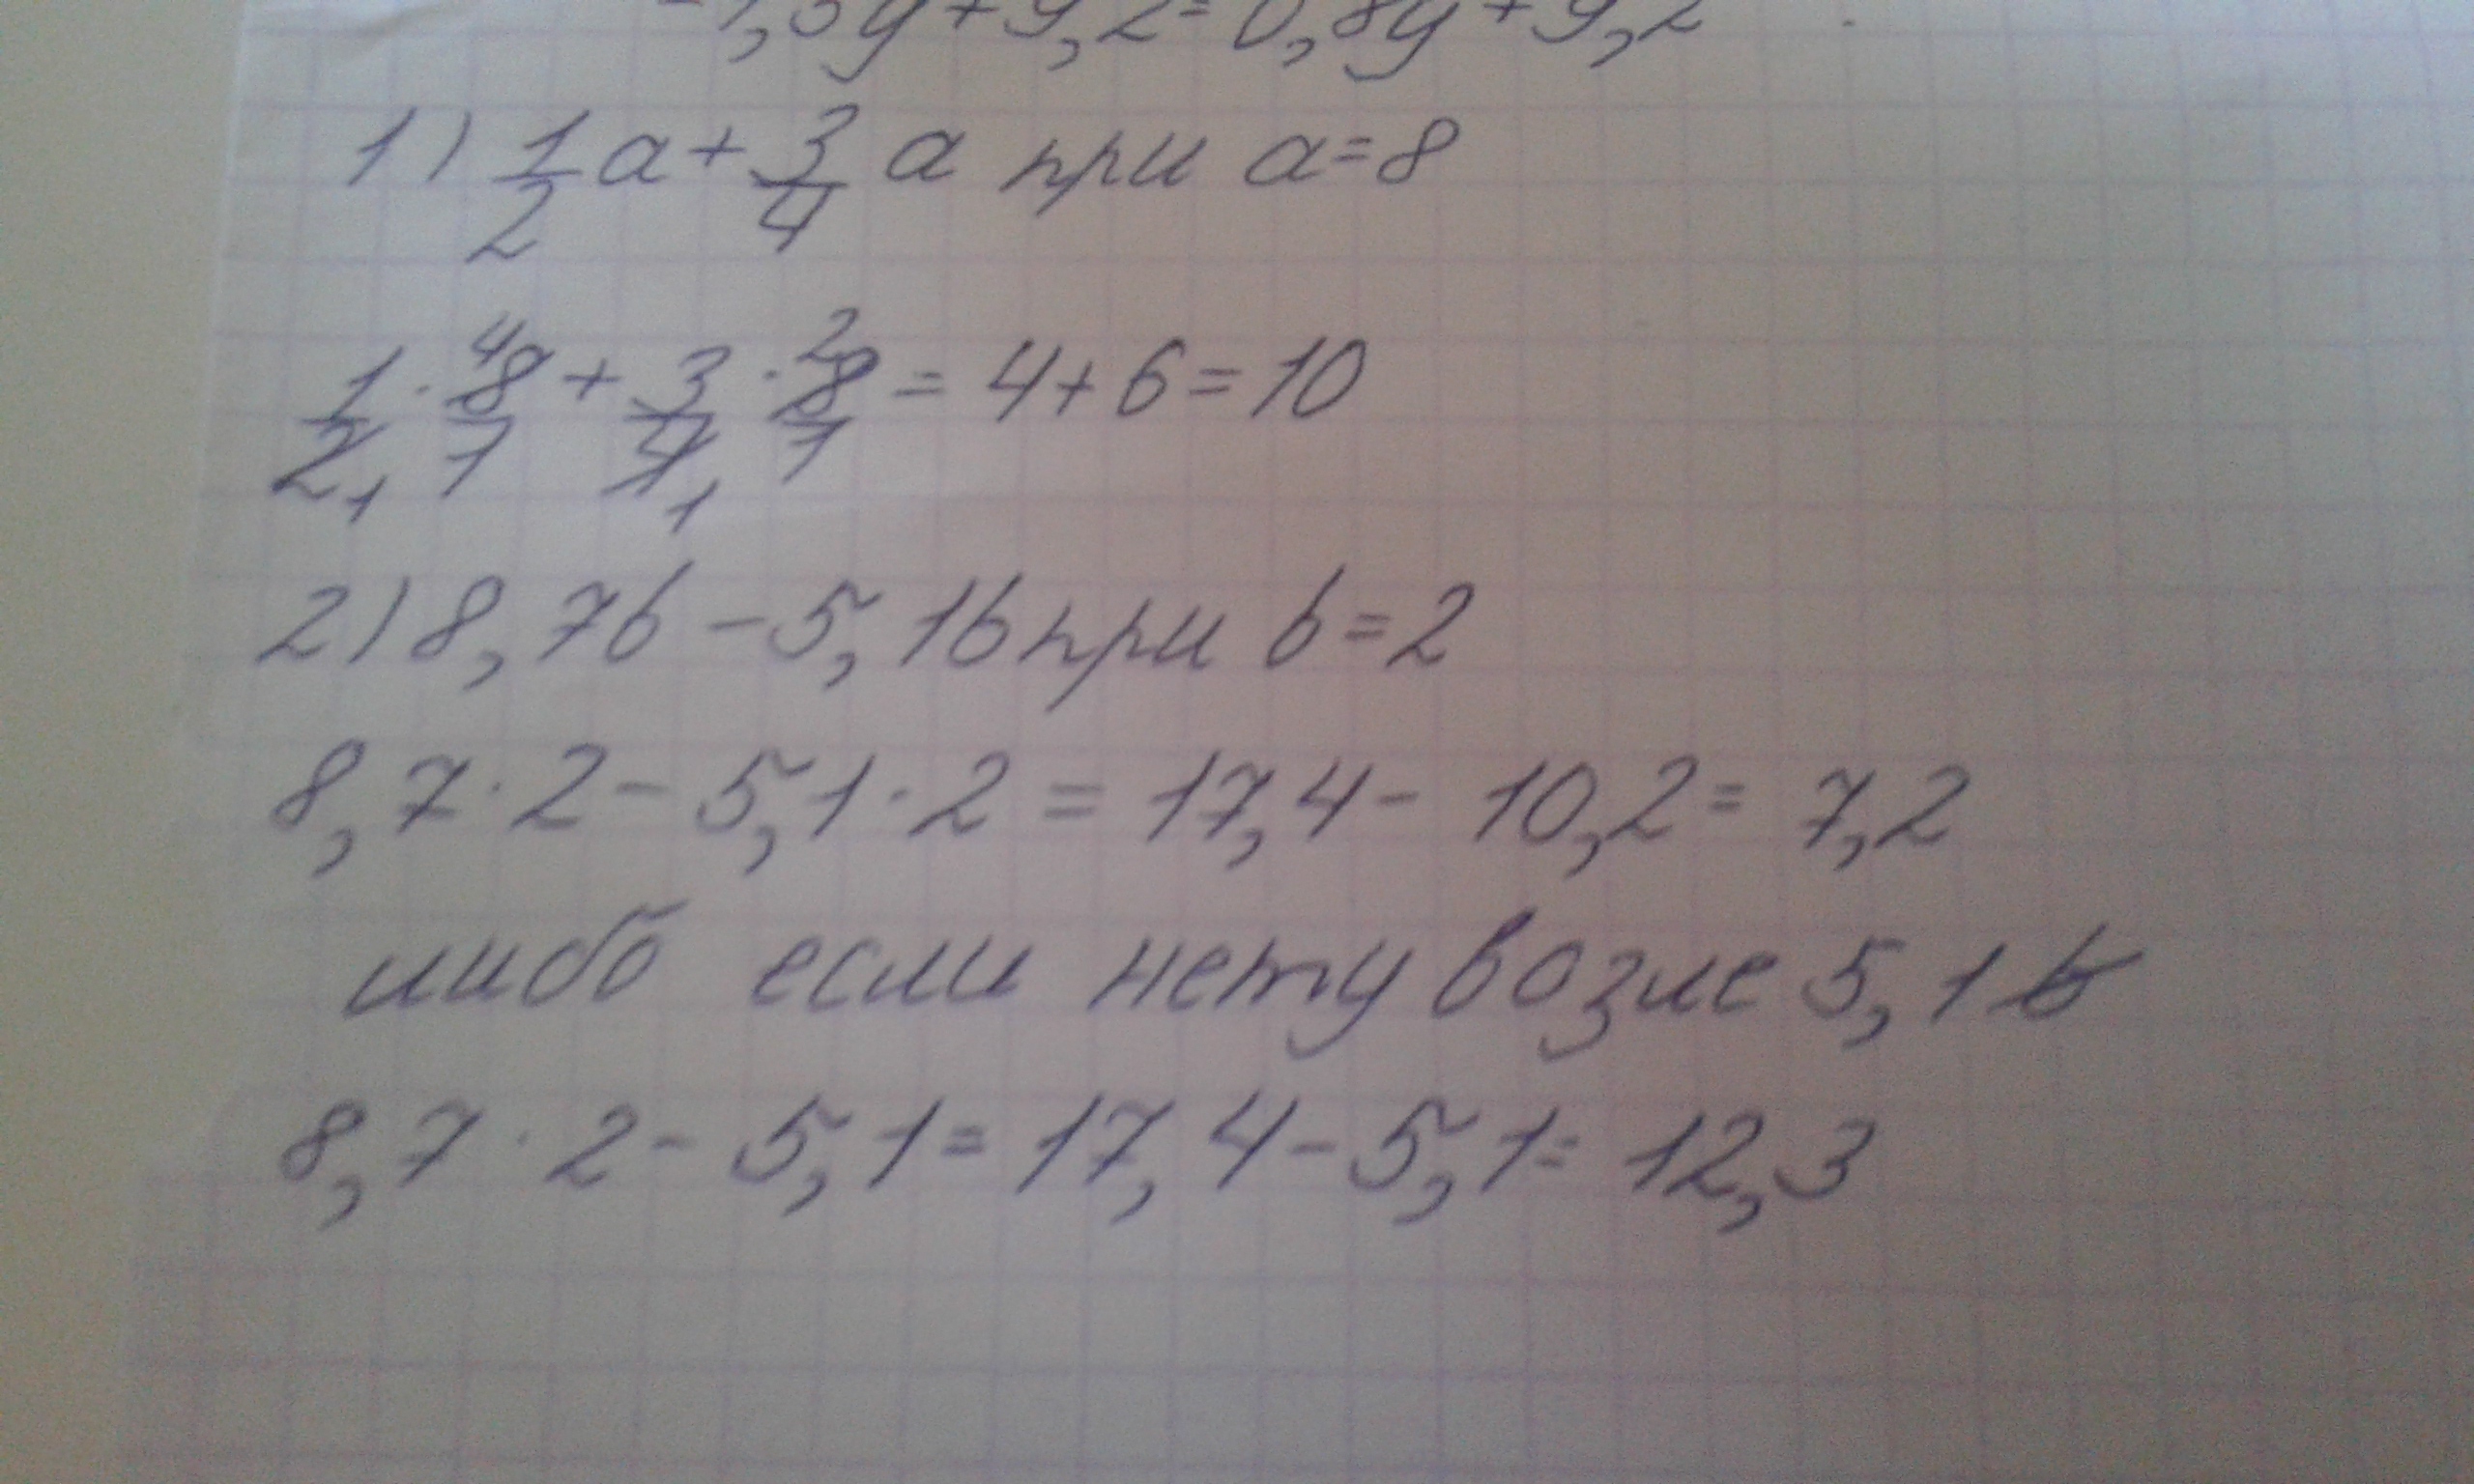 + 9,2 = 0,8y + 9,2
1) 1/2 a + 3/4 a при a = 8
1/2 · 8/1 + 3/4 · 8/1 = 4 + 6 = 10
2) 8,7b - 5,1b при b = 2
8,7 · 2 - 5,1 · 2 = 17,4 - 10,2 = 7,2
либо если нету возле 5,1 b
8,7 · 2 - 5,1 = 17,4 - 5,1 = 12,3